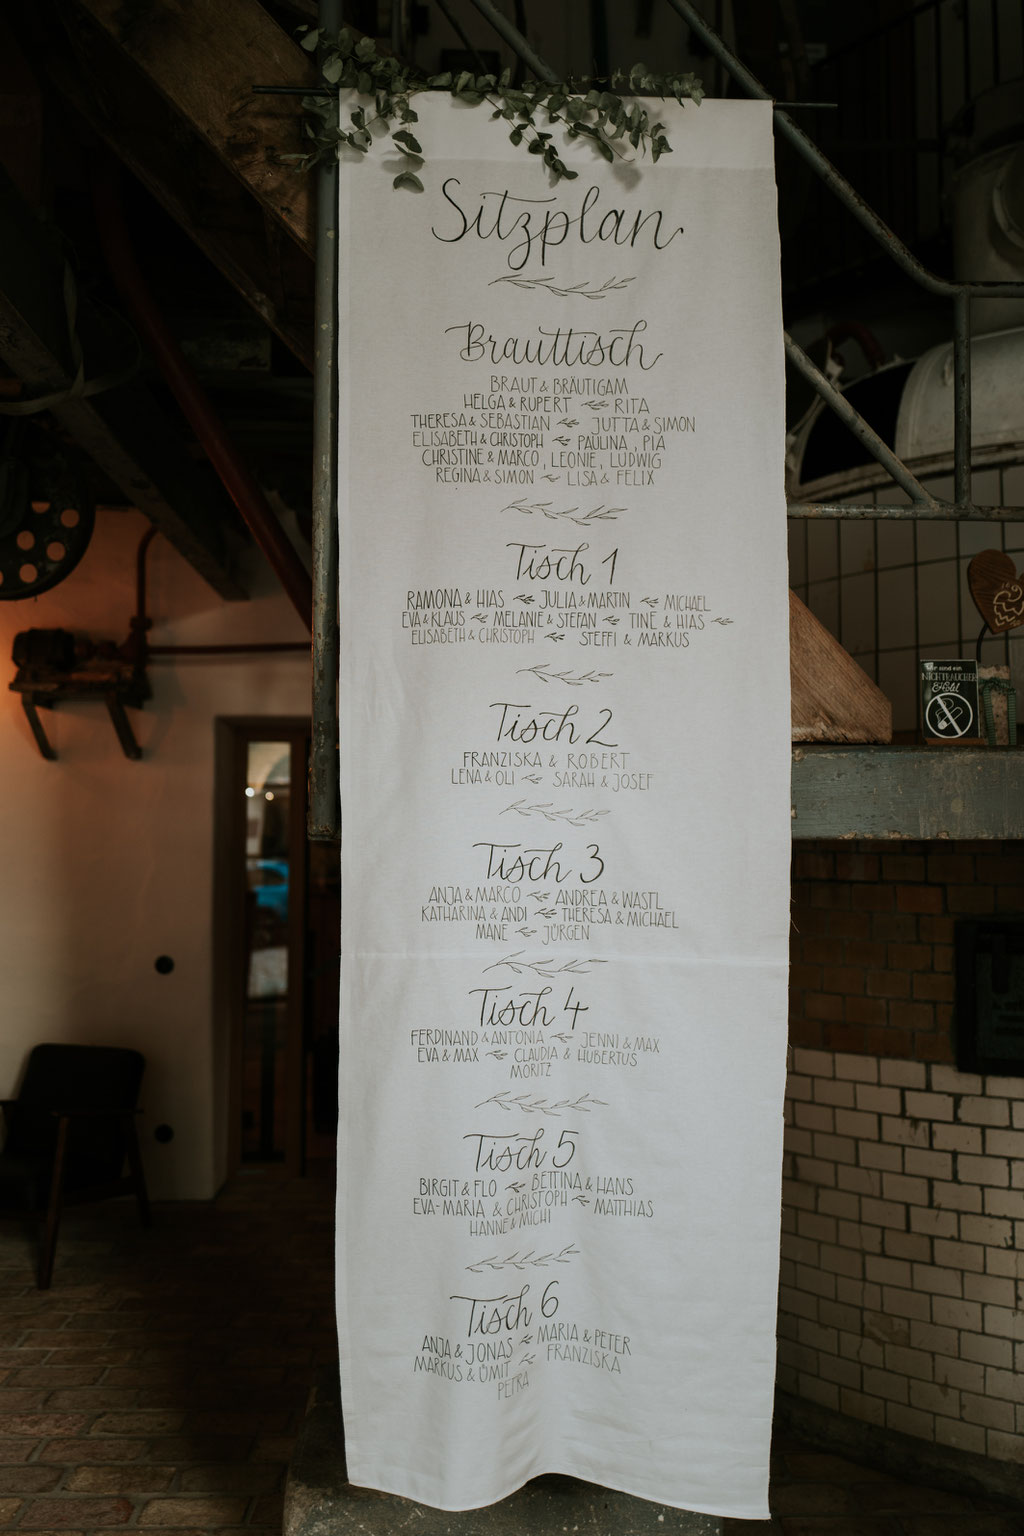 Sitzplan
Brauttisch
BRAUT & BRÄUTIGAM
HELGA & RUPERT RITA
THERESA & SEBASTIAN JUTTA & SIMON
ELISABETH & CHRISTOPH PAULINA, PIA
CHRISTINE & MARCO, LEONIE, LUDWIG
REGINA & SIMON LISA & FELIX
Tisch 1
RAMONA & HIAS JULIA & MARTIN MICHAEL
EVA & KLAUS MELANIE & STEFAN TINE & HIAS
ELISABETH & CHRISTOPH STEFFI & MARKUS
Tisch 2
FRANZISKA & ROBERT
LENA & OLI SARAH & JOSEF
Tisch 3
ANJA & MARCO ANDREA & WASTL
KATHARINA & ANDI THERESA & MICHAEL
MANE JÜRGEN
Tisch 4
FERDINAND & ANTONIA JENNI & MAX
EVA & MAX CLAUDIA & HUBERTUS
MORITZ
Tisch 5
BIRGIT & FLO BETTINA & HANS
EVA-MARIA & CHRISTOPH MATTHIAS
HANNE & MICHI
Tisch 6
ANJA & JONAS MARIA & PETER
MARKUS & ÜMIT FRANZISKA
PETRA
Wir sind ein
NICHTRAUCHER